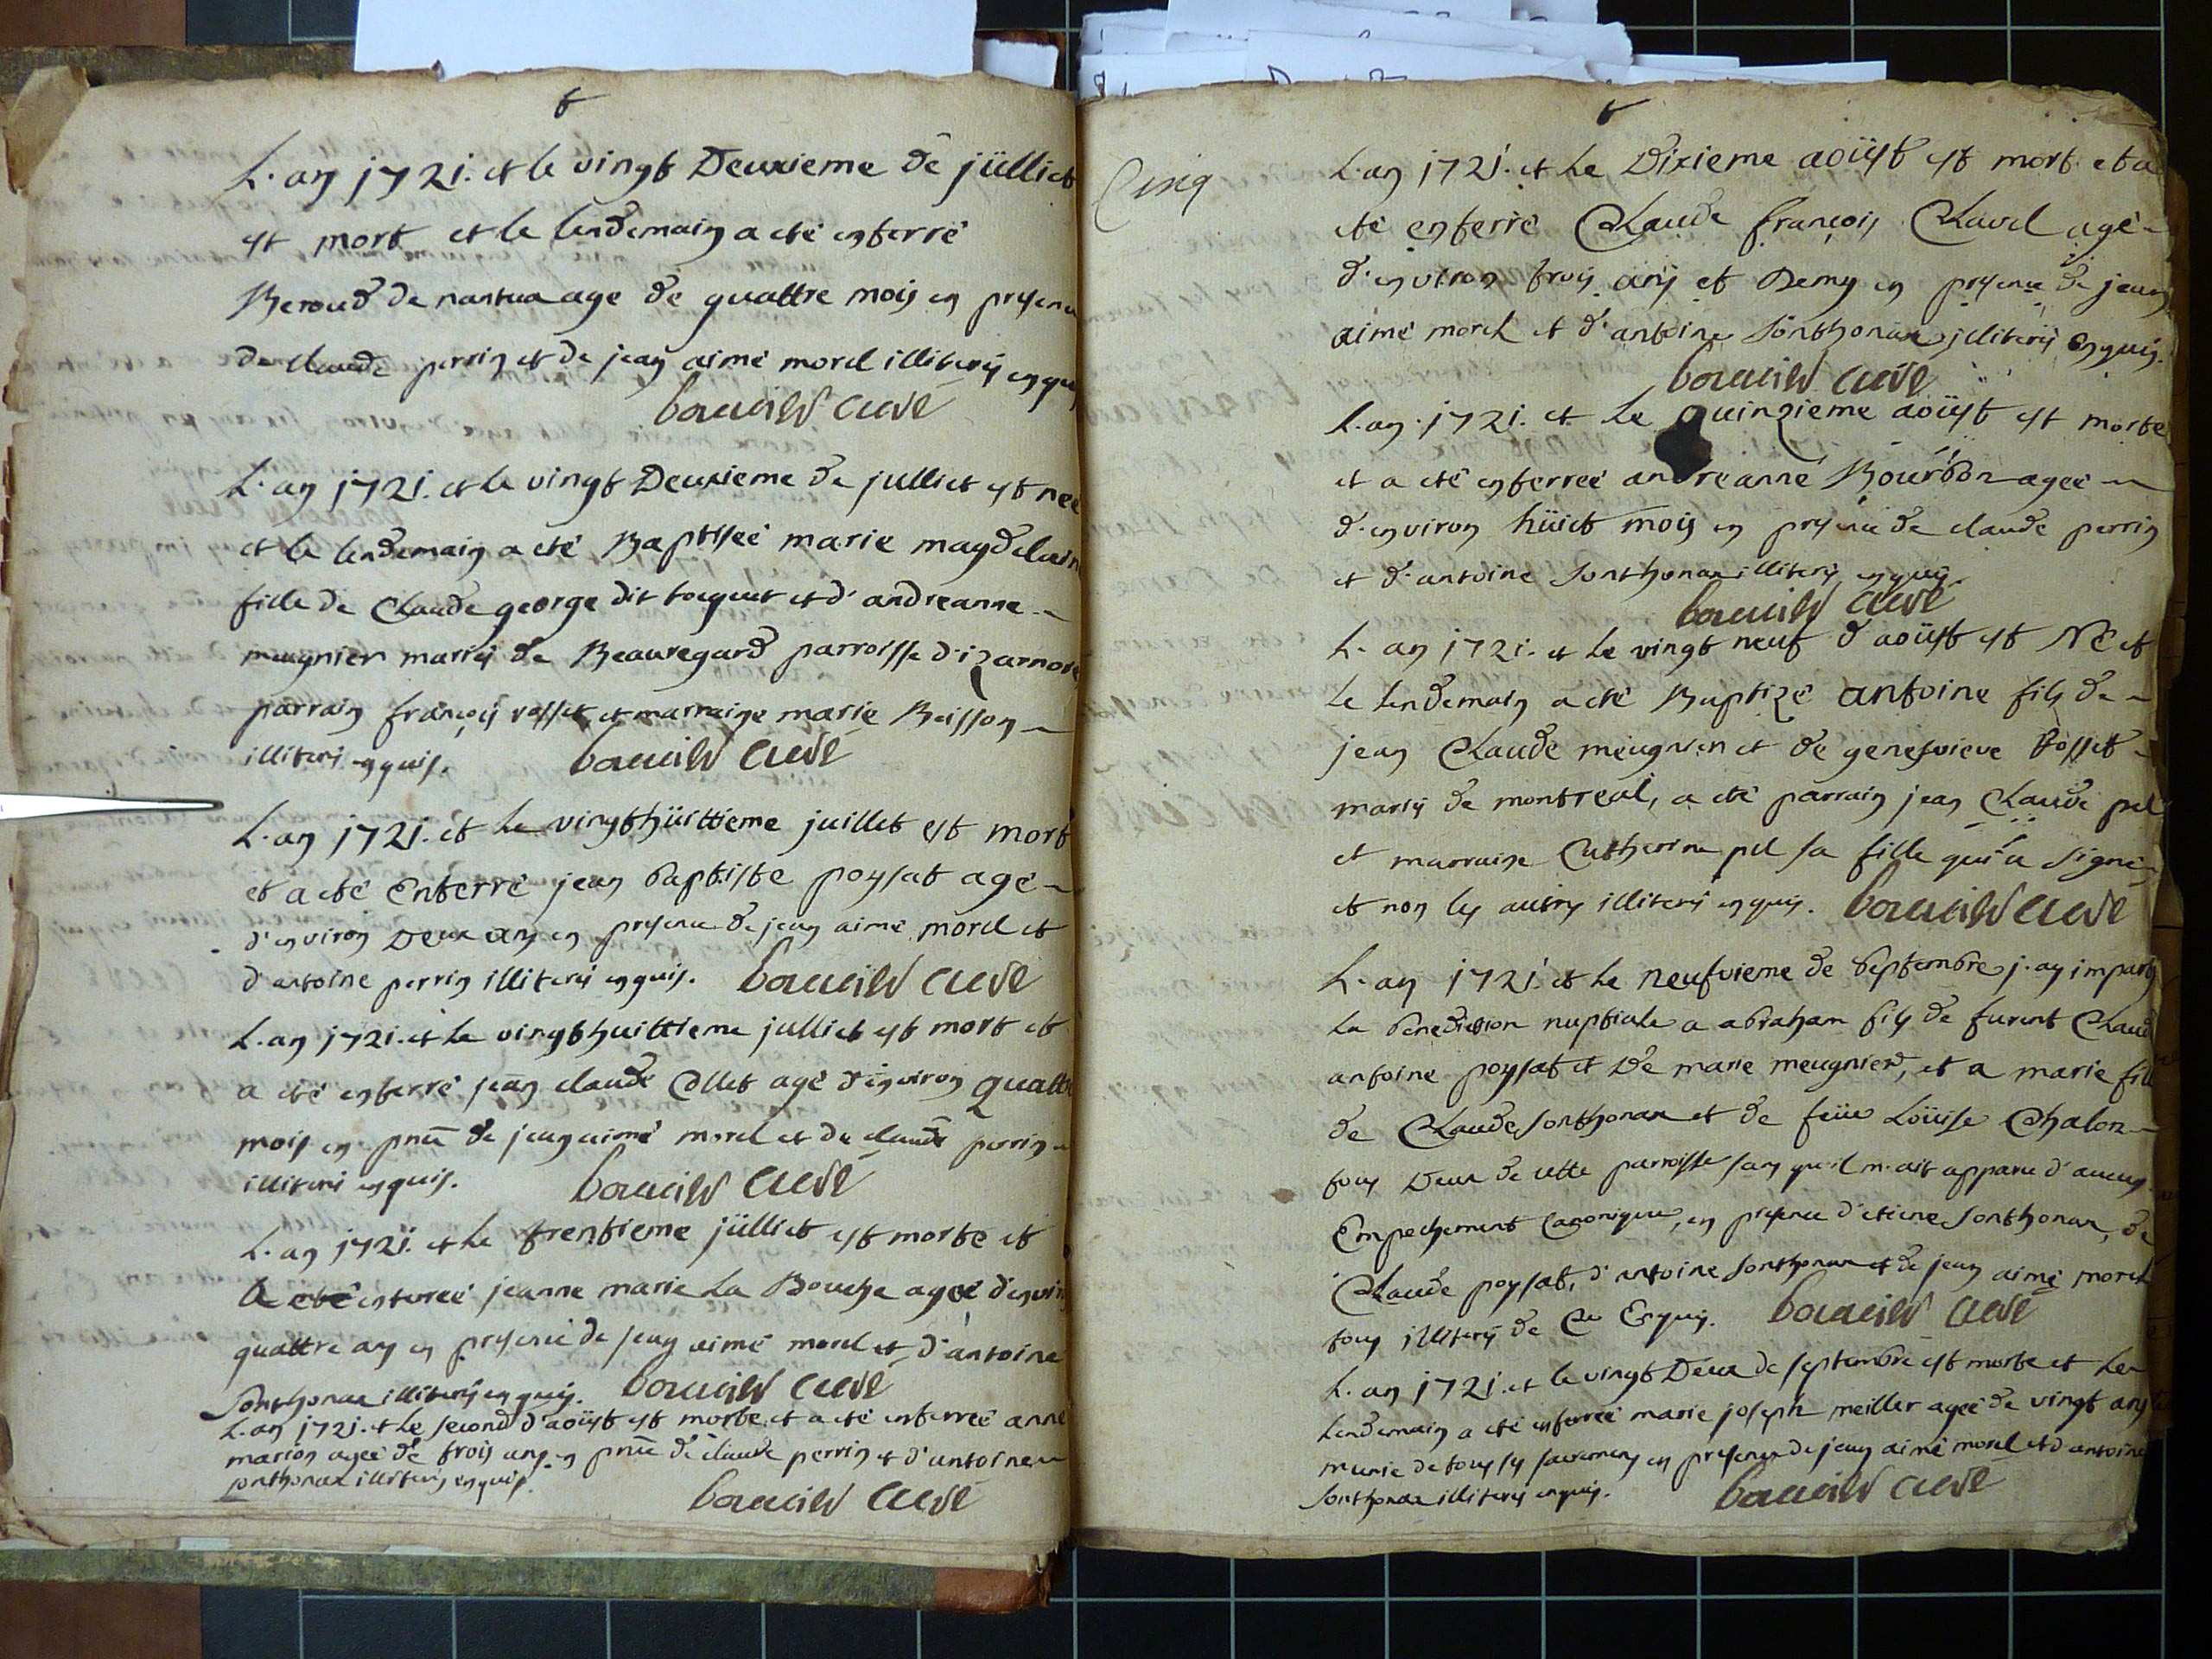 L'an 1721. et le vingt Deuxieme de jüllict
est mort et le lendemain a eté enterré
Beroud de nantua age de quattre mois en presence
de claude perrin et de jean aimé morel illiterés enquis
bouueilh curé
L'an 1721. et le vingt Deuxieme de julliet est neé
et le lendemain a eté Baptiseé marie magdelaine
fille de Claude george dit et d'andreanne
meugnier mariés de Beauregard parroisse d'izarnore
parrain françois rosset et marraine marie Buisson
illiterés enquis. bouueilh curé
L'an 1721. et le vingthüittieme juillet est mort
et a eté Enterré jean baptiste poysat agé
d'environ Deux ans en presence de jean aimé morel et
d'antoine perrin illiterés enquis. bouueilh curé
L'an 1721. et le vingthuittieme julliet est mort et
a eté enterré jean claude Collet agé d'environ quattre
mois en pnce de jean aimé morel et de claude perrin
illiterés enquis. bouueilh curé
L'an 1721. et le trentieme jülliet est morte et
a eté enterreé jeanne marie La Bouche ageé d'environ
quattre ans en presence de jean aimé morel et d'antoine
Sonthonax illiterés enquis. bouueilh curé
L'an 1721. et le second d'aoüst est morte et a eté enterreé anne
marion ageé de trois ans en pnce de claude perrin et d'antoine
sonthonax illiterés enquis.
bouueilh curé
Cinq
L'an 1721. et Le Dixieme aoüst est mort et a
eté enterré Claude françois Clavel agé
d'environ trois ans et Demy en presence de jean
aimé morel et d'antoine Sonthonax illiterés Enquis.
bouueilh curé
L'an 1721. et Le quinzieme aoüst est morte
et a eté enterreé andreanne Bourbon ageé
d'environ hüict mois en presence de claude perrin
et d'antoine Sonthonax illiterés enquis.
bouueilh curé
L'an 1721. et le vingt neuf d'aoüst est Né et
le lendemain a eté Baptizé antoine fils de
jean Claude meugnier et de genefvieve Rosset
mariés de montreal, a eté parrain jean Claude pel
et marraine Catherine pel sa fille qui a signé
et non les autres illiterés enquis. bouueilh curé
L'an 1721. et le neufvieme de Septembre j'ay imparty
La benediction nuptiale a abraham fils de furent Claude
antoine poysat et De marie meugnier, et a marie fille
de Claude Sonthonax et de feüe Loüise Chalon
tous Deux de cette parroisse sans qu'il m'ait apparu d'aucun
Empechement Canonique, en presence d'etiene Sonthonax, de
Claude poysat, d'antoine Sonthonax et de jean aimé morel
tous illiterés de Ce Enquis. bouueilh curé
L'an 1721. et le vingt Deux de septembre est morte et Le
Lendemain a eté enterreé marie joseph meiller ageé de vingt ans
munie de tous ses sacremens en presence de jean aimé morel et d'antoine
Sonthonax illiterés enquis. bouueilh curé